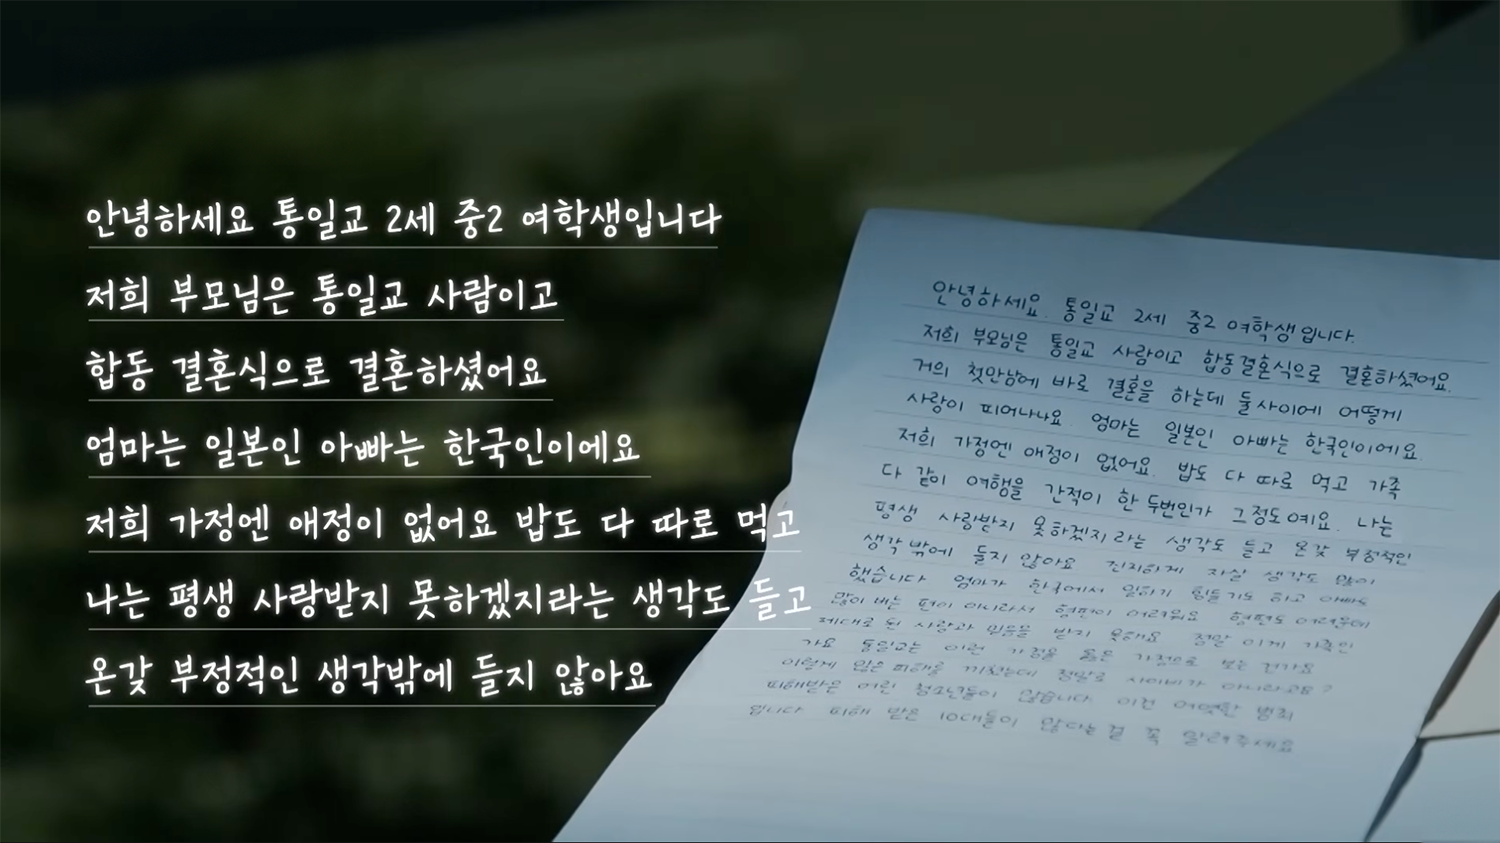 안녕하세요 통일교 2세 중2 여학생입니다
저희 부모님은 통일교 사람이고
합동 결혼식으로 결혼하셨어요
엄마는 일본인 아빠는 한국인이에요
저희 가정엔 애정이 없어요 밥도 다 따로 먹고
나는 평생 사랑받지 못하겠지라는 생각도 들고
온갖 부정적인 생각밖에 들지 않아요
안녕하세요. 통일교 2세 중2 여학생입니다.
저희 부모님은 통일교 사람이고 합동결혼식으로 결혼하셨어요.
거의 첫만남에 바로 결혼을 하는데 둘사이에 어떻게
사랑이 피어나나요. 엄마는 일본인 아빠는 한국인이에요.
저희 가정엔 애정이 없어요. 밥도 다 따로 먹고 가족
다 같이 여행을 간적이 한 두번인가 그정도예요. 나는
평생 사랑받지 못하겠지라는 생각도 들고 온갖 부정적인
생각밖에 들지 않아요 진지하게 자살 생각도 많이
했습니다 엄마가 한국에서 일하기 힘들기도 하고 아빠도
많이 버는 편이 아니라서 형편이 어려워요 형편도 어려운데
제대로 된 사랑과 믿음을 받지 못해요 정말 이게 가족인
가요 통일교는 이런 가정을 옳은 가정으로 보는 건가요
이렇게 입은 피해를 끼쳤는데 정말로 사이비가 아니라고요?
피해받은 어린 청소년들이 많습니다 이건 어엿한 범죄
입니다 피해 받은 10대들이 많다는걸 꼭 알려주세요